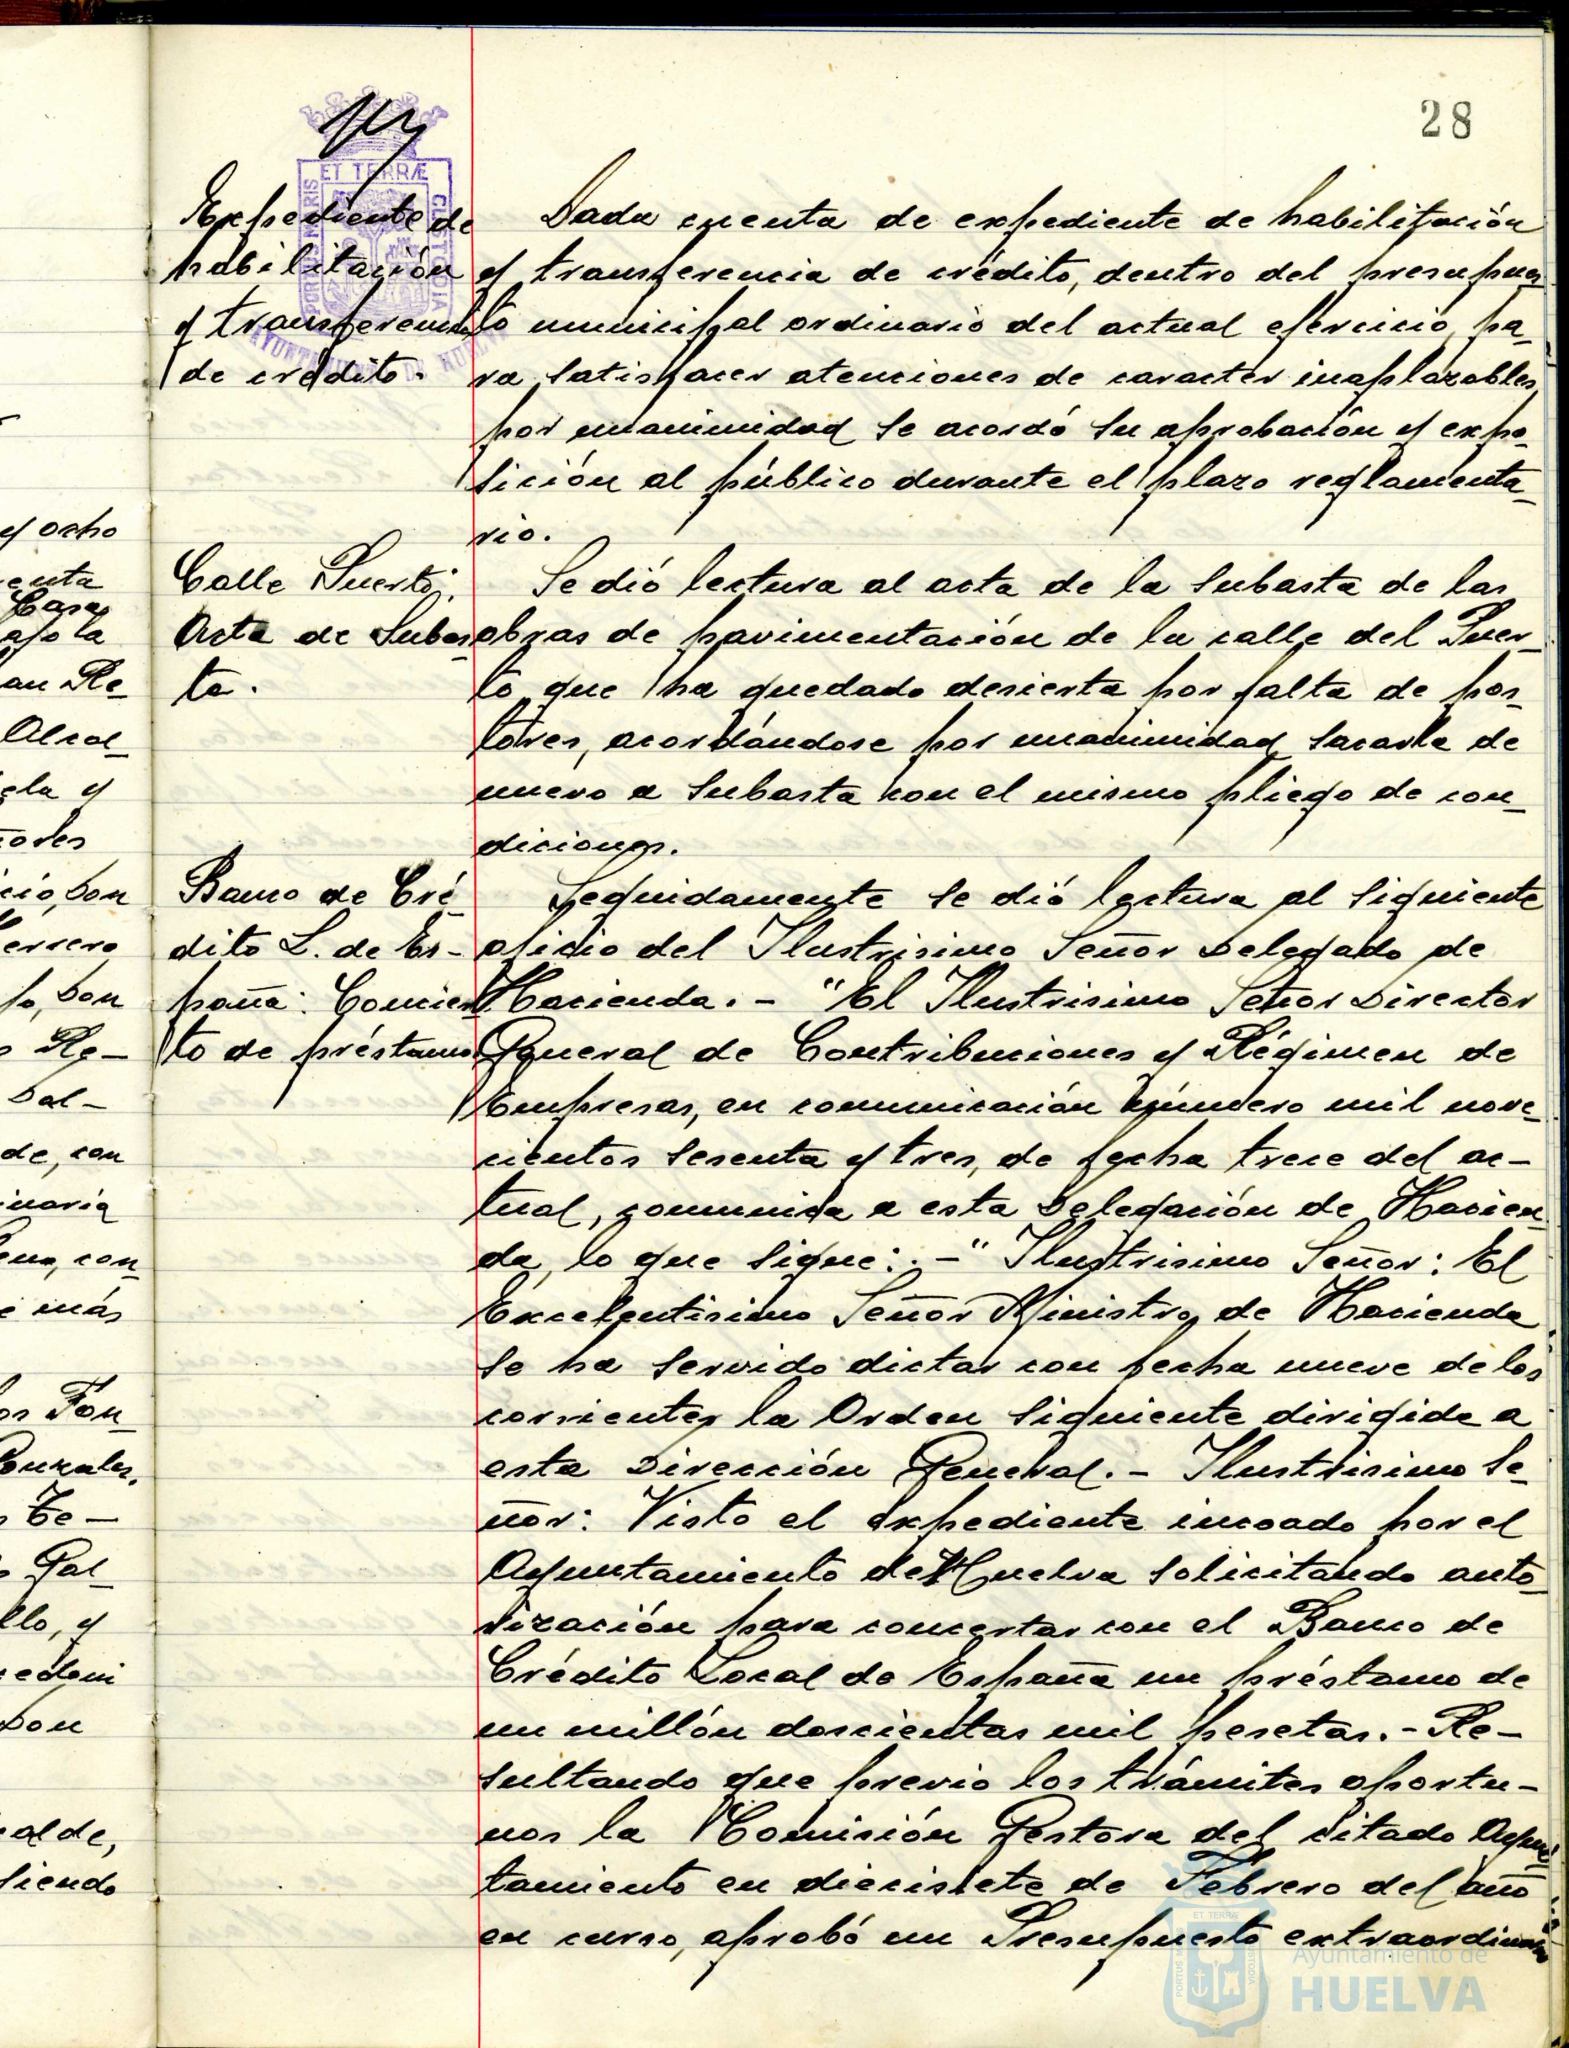 28
ET TERRÆ
PORTUS MARIS
CUSTODIA
AYUNTAMIENTO DE HUELVA
Expediente de
habilitación
y transferencia
de crédito.
Dada cuenta de expediente de habilitación
y transferencia de crédito, dentro del presupues-
to municipal ordinario del actual ejercicio, pa-
ra satisfacer atenciones de caracter inaplazables,
por unanimidad se acordó su aprobación y expo-
sición al público durante el plazo reglamenta-
rio.
Calle Puerto:
Acta de Subas-
ta.
Se dió lectura al acta de la subasta de las
obras de pavimentación de la calle del Puer-
to que ha quedado desierta por falta de pos-
tores, acordándose por unanimidad sacarla de
nuevo a subasta con el mismo pliego de con-
diciones.
Banco de Cré-
dito L. de Es-
paña: Concier-
to de préstamo
Seguidamente se dió lectura al siguiente
oficio del Ilustrisimo Señor Delegado de
Hacienda. - "El Ilustrisimo Señor Director
General de Contribuciones y Régimen de
Empresas, en comunicación número mil nove-
cientos sesenta y tres, de fecha trece del ac-
tual, comunica a esta Delegación de Hacien-
da, lo que sigue: . -" Ilustrisimo Señor: El
Excelentisimo Señor Ministro de Hacienda
se ha servido dictar con fecha nueve de los
corrientes la Orden siguiente dirigida a
esta Dirección General. - Ilustrisimo Se-
ñor: Visto el expediente incoado por el
Ayuntamiento de Huelva solicitando auto-
rización para concertar con el Banco de
Crédito Local de España un préstamo de
un millón doscientas mil pesetas. - Re-
sultando que previo los trámites oportu-
nos la Comisión Gestora del citado Ayun-
tamiento en diecisiete de Febrero del año
en curso, aprobó un Presupuesto extraordinario
y ocho
enta
Casa
ajo la
an Re-
Alcal-
ela y
ñores
icio, Don
errero
fo, Don
Re-
Bal-
de, con
inaria
con-
e más
os Fon-
Gonzalez,
Te-
Gal-
llo, y
Don
alde,
siendo
Ayuntamiento de
HUELVA